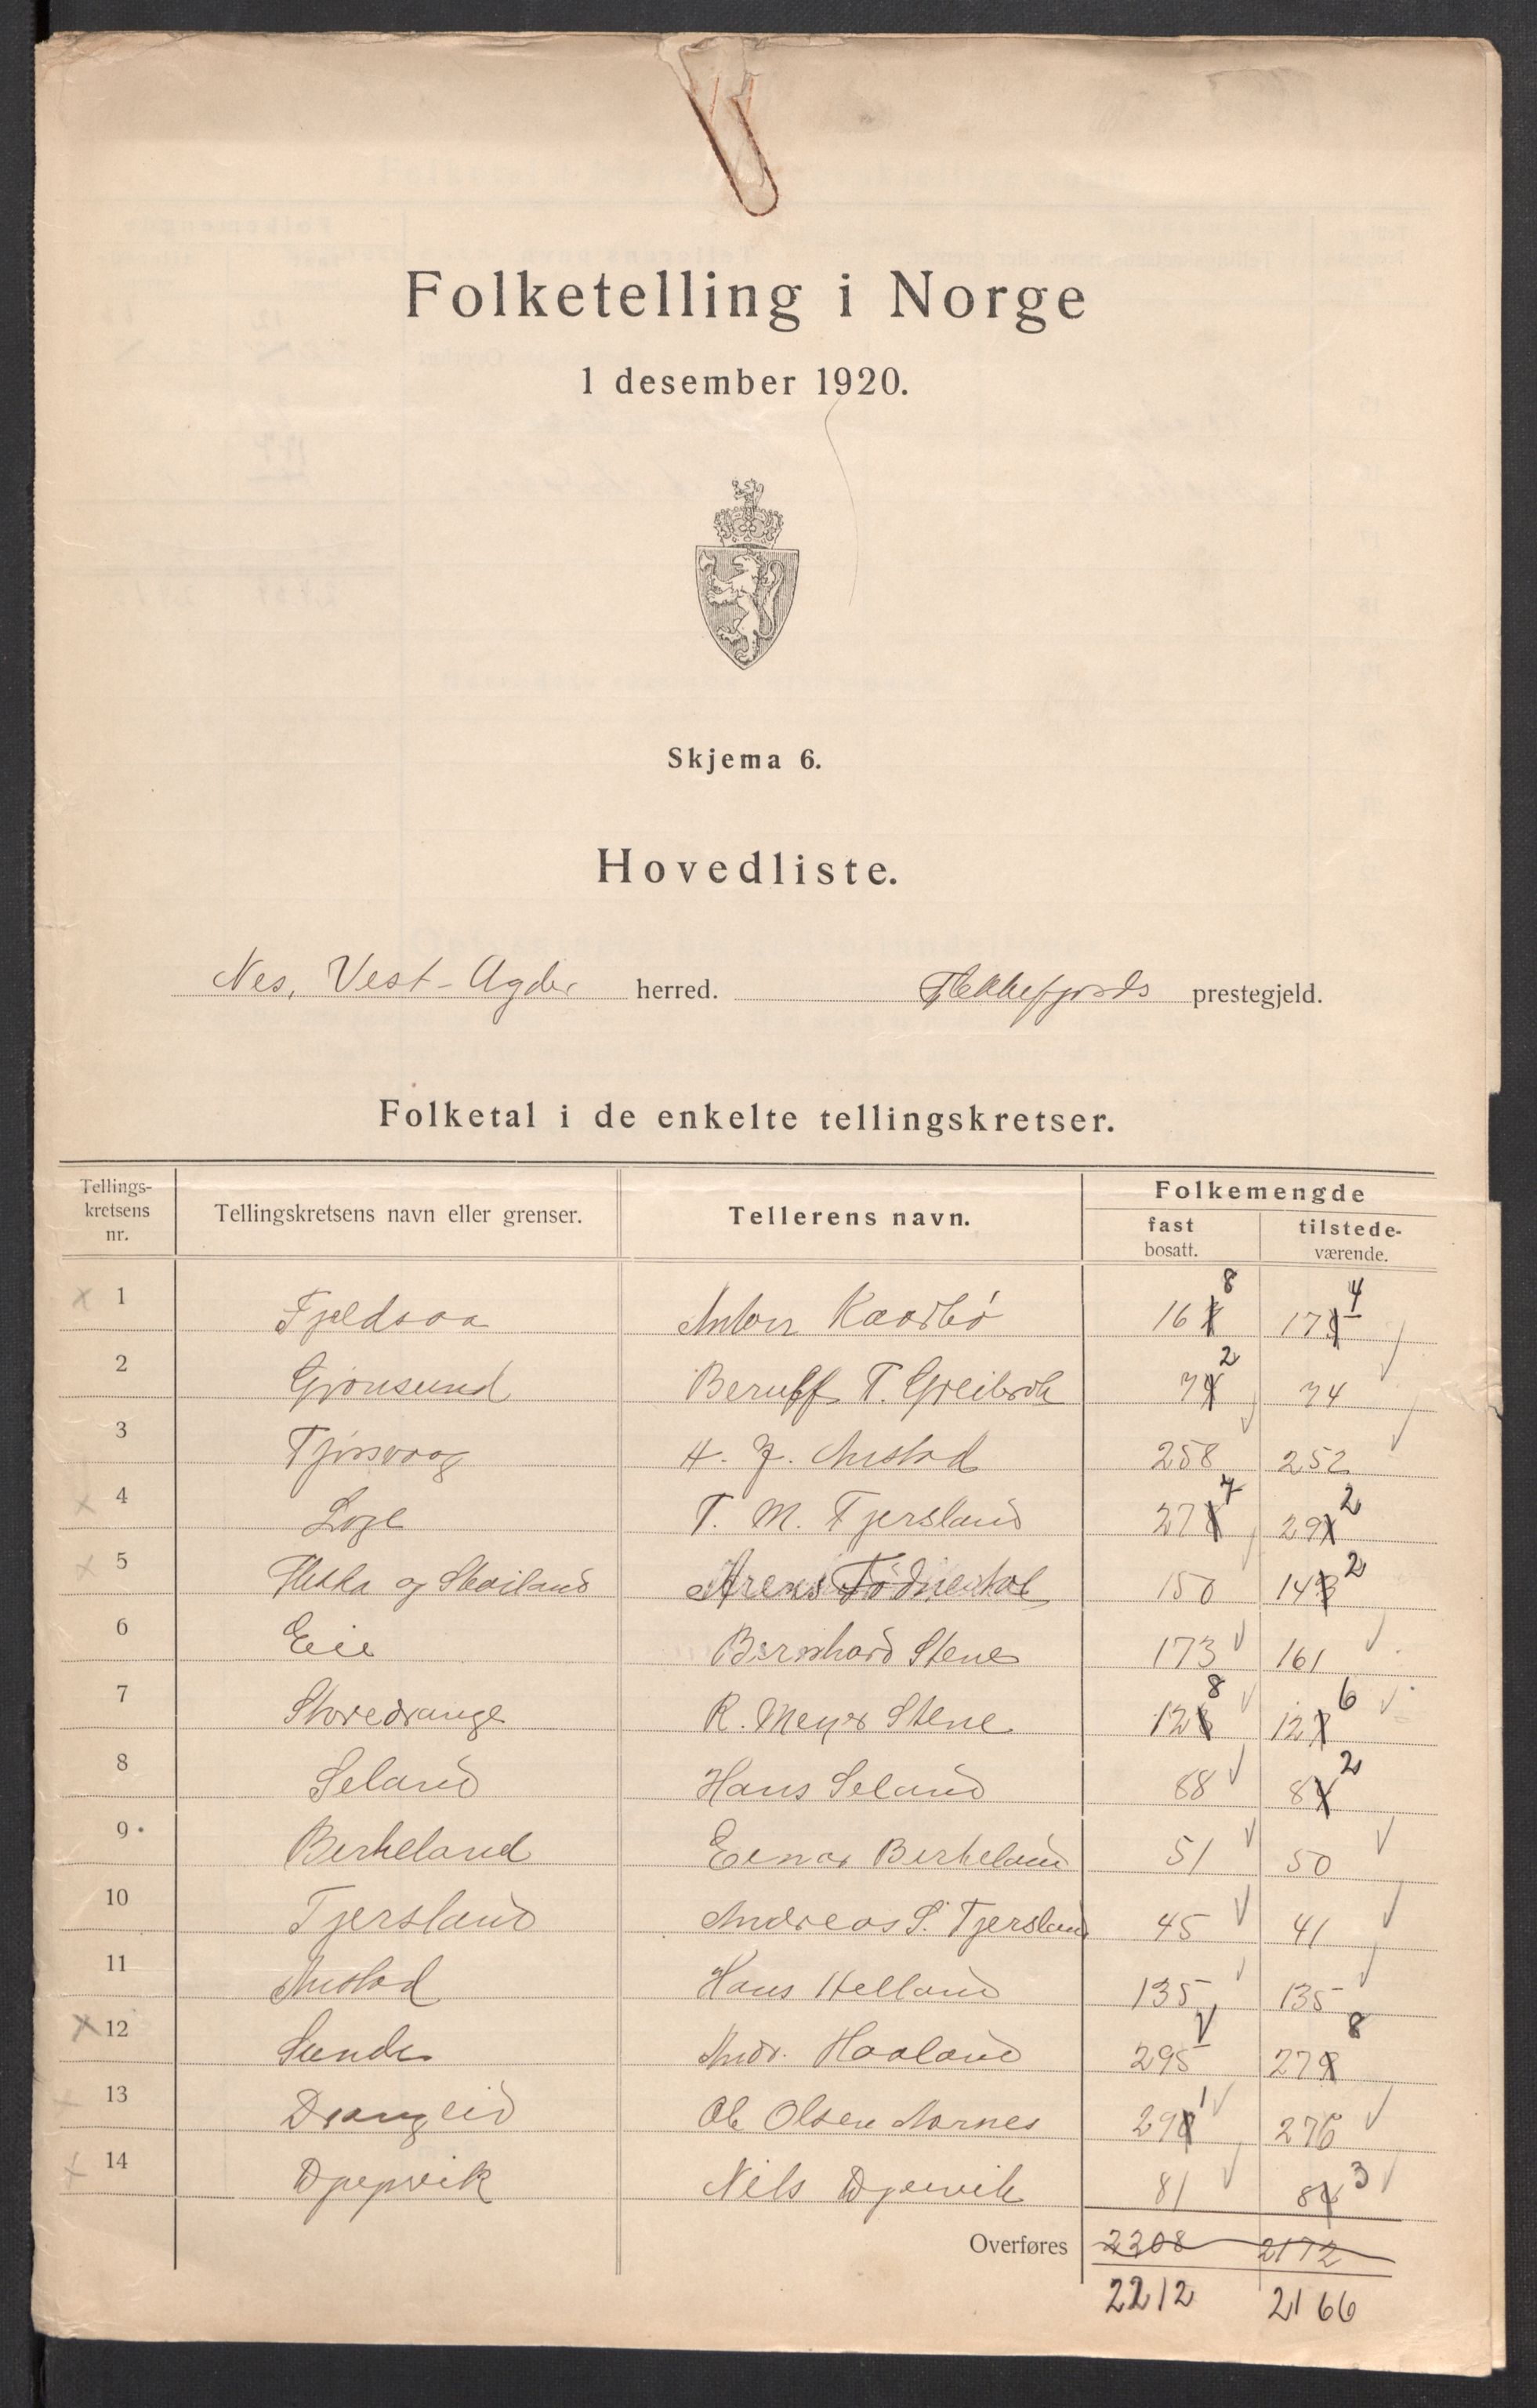 Folketelling i Norge
1 desember 1920.
Skjema 6.
Hovedliste.
Nes, Vest-Agder herred. Flekkefjords prestegjeld.
Folketal i de enkelte tellingskretser.
Tellings-kretsens nr. Tellingskretsens navn eller grenser. Tellerens navn. Folkemengde fast bosatt. tilstede-værende.
1 Fjeldsaa Anton 168 174
2 Grønsund T. Greibrok 72 74
3 Tjørsvaag H. J. Austad 258 252
4 Loge T. M. Tjersland 277 292
5 og Skailand 150 142
6 Eie Bernhard Stene 173 161
7 Storedrange R. Meyer Stene 128 126
8 Seland Hans Seland 88 82
9 Birkeland Einar Birkeland 51 50
10 Tjersland Andreas S. Tjersland 45 41
11 Austad Hans Helland 135 135
12 Sunde Andr. Haaland 295 278
13 Drangeid Ole Olsen Aarnes 291 276
14 Djupvik Nils Djupvik 81 83
Overføres 2208 2172
2212 2166